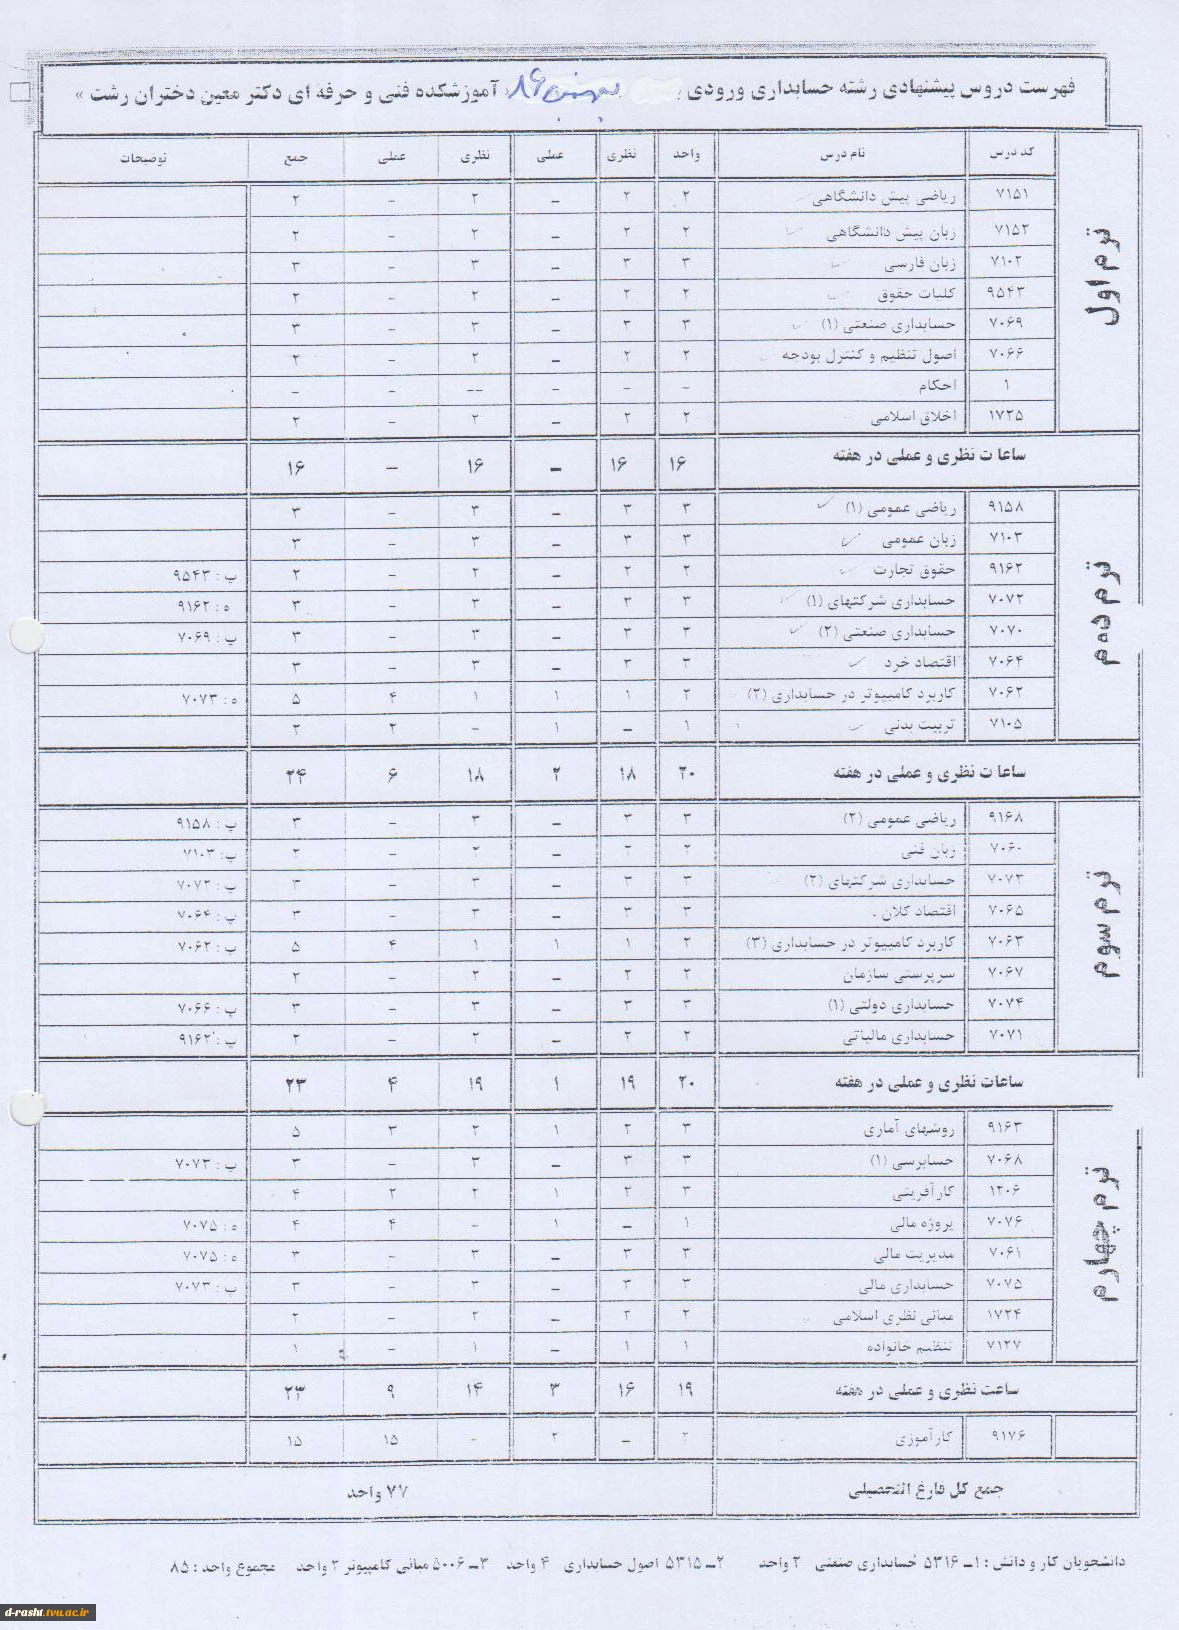 فهرست دروس پیشنهادی رشته حسابداری ورودی بهمن ۸۶ آموزشکده فنی و حرفه ای دکتر معین دختران رشت »
کد درس نام درس واحد نظری عملی نظری عملی جمع توضیحات
ترم اول
۷۱۵۱ ریاضی پیش دانشگاهی ۲ ۲ – ۲ – ۲
۷۱۵۲ زبان پیش دانشگاهی ۲ ۲ – ۲ – ۲
۷۱۰۲ زبان فارسی ۳ ۳ – ۳ – ۳
۹۵۴۳ کلیات حقوق ۲ ۲ – ۲ – ۲
۷۰۶۹ حسابداری صنعتی (۱) ۳ ۳ – ۳ – ۳
۷۰۶۶ اصول تنظیم و کنترل بودجه ۲ ۲ – ۲ – ۲
۱ احکام – – – -- – –
۱۷۲۵ اخلاق اسلامی ۲ ۲ – ۲ – ۲
ساعات نظری و عملی در هفته ۱۶ ۱۶ – ۱۶ – ۱۶
ترم دوم
۹۱۵۸ ریاضی عمومی (۱) ۳ ۳ – ۳ – ۳
۷۱۰۳ زبان عمومی ۳ ۳ – ۳ – ۳
۹۱۶۲ حقوق تجارت ۲ ۲ – ۲ – ۲ پ : ۹۵۴۳
۷۰۷۲ حسابداری شرکتهای (۱) ۳ ۳ – ۳ – ۳ ه : ۹۱۶۲
۷۰۷۰ حسابداری صنعتی (۲) ۳ ۳ – ۳ – ۳ پ : ۷۰۶۹
۷۰۶۴ اقتصاد خرد ۳ ۳ – ۳ – ۳
۷۰۶۲ کاربرد کامپیوتر در حسابداری (۲) ۲ ۱ ۱ ۱ ۴ ۵ ه : ۷۰۷۳
۷۱۰۵ تربیت بدنی ۱ – ۱ – ۲ ۲
ساعات نظری و عملی در هفته ۲۰ ۱۸ ۲ ۱۸ ۶ ۲۴
ترم سوم
۹۱۶۸ ریاضی عمومی (۲) ۳ ۳ – ۳ – ۳ پ : ۹۱۵۸
۷۰۶۰ زبان فنی ۲ ۲ – ۲ – ۲ پ : ۷۱۰۳
۷۰۷۳ حسابداری شرکتهای (۲) ۳ ۳ – ۳ – ۳ پ : ۷۰۷۲
۷۰۶۵ اقتصاد کلان . ۳ ۳ – ۳ – ۳ پ : ۷۰۶۴
۷۰۶۳ کاربرد کامپیوتر در حسابداری (۳) ۲ ۱ ۱ ۱ ۴ ۵ پ : ۷۰۶۲
۷۰۶۷ سرپرستی سازمان ۲ ۲ – ۲ – ۲
۷۰۷۴ حسابداری دولتی (۱) ۳ ۳ – ۳ – ۳ پ : ۷۰۶۶
۷۰۷۱ حسابداری مالیاتی ۲ ۲ – ۲ – ۲ پ : ۹۱۶۲
ساعات نظری و عملی در هفته ۲۰ ۱۹ ۱ ۱۹ ۴ ۲۳
ترم چهارم
۹۱۶۳ روشهای آماری ۳ ۲ ۱ ۲ ۳ ۵
۷۰۶۸ حسابرسی (۱) ۳ ۳ – ۳ – ۳ پ : ۷۰۷۳
۱۲۰۶ کارآفرینی ۳ ۲ ۱ ۲ ۲ ۴
۷۰۷۶ پروژه مالی ۱ – ۱ – ۴ ۴ ه : ۷۰۷۵
۷۰۶۱ مدیریت مالی ۳ ۳ – ۳ – ۳ ه : ۷۰۷۵
۷۰۷۵ حسابداری مالی ۳ ۳ – ۳ – ۳ پ : ۷۰۷۳
۱۷۲۴ مبانی نظری اسلامی ۲ ۲ – ۲ – ۲
۷۱۲۷ تنظیم خانواده ۱ ۱ – ۱ – ۱
ساعت نظری و عملی در هفته ۱۹ ۱۶ ۳ ۱۴ ۹ ۲۳
۹۱۷۶ کارآموزی ۲ – ۲ – ۱۵ ۱۵
جمع کل فارغ التحصیلی ۷۷ واحد
دانشجویان کار و دانش : ۱ــ ۵۳۱۶ حسابداری صنعتی ۲ واحد ۲ــ ۵۳۱۵ اصول حسابداری ۴ واحد ۳ــ ۵۰۰۶ مبانی کامپیوتر ۲ واحد مجموع واحد : ۸۵
d-rasht.tvu.ac.ir